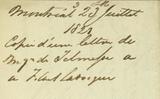 Montréal 23 Juillet
182
Copie d'une lettre de
Mgr de Telmesse a
a